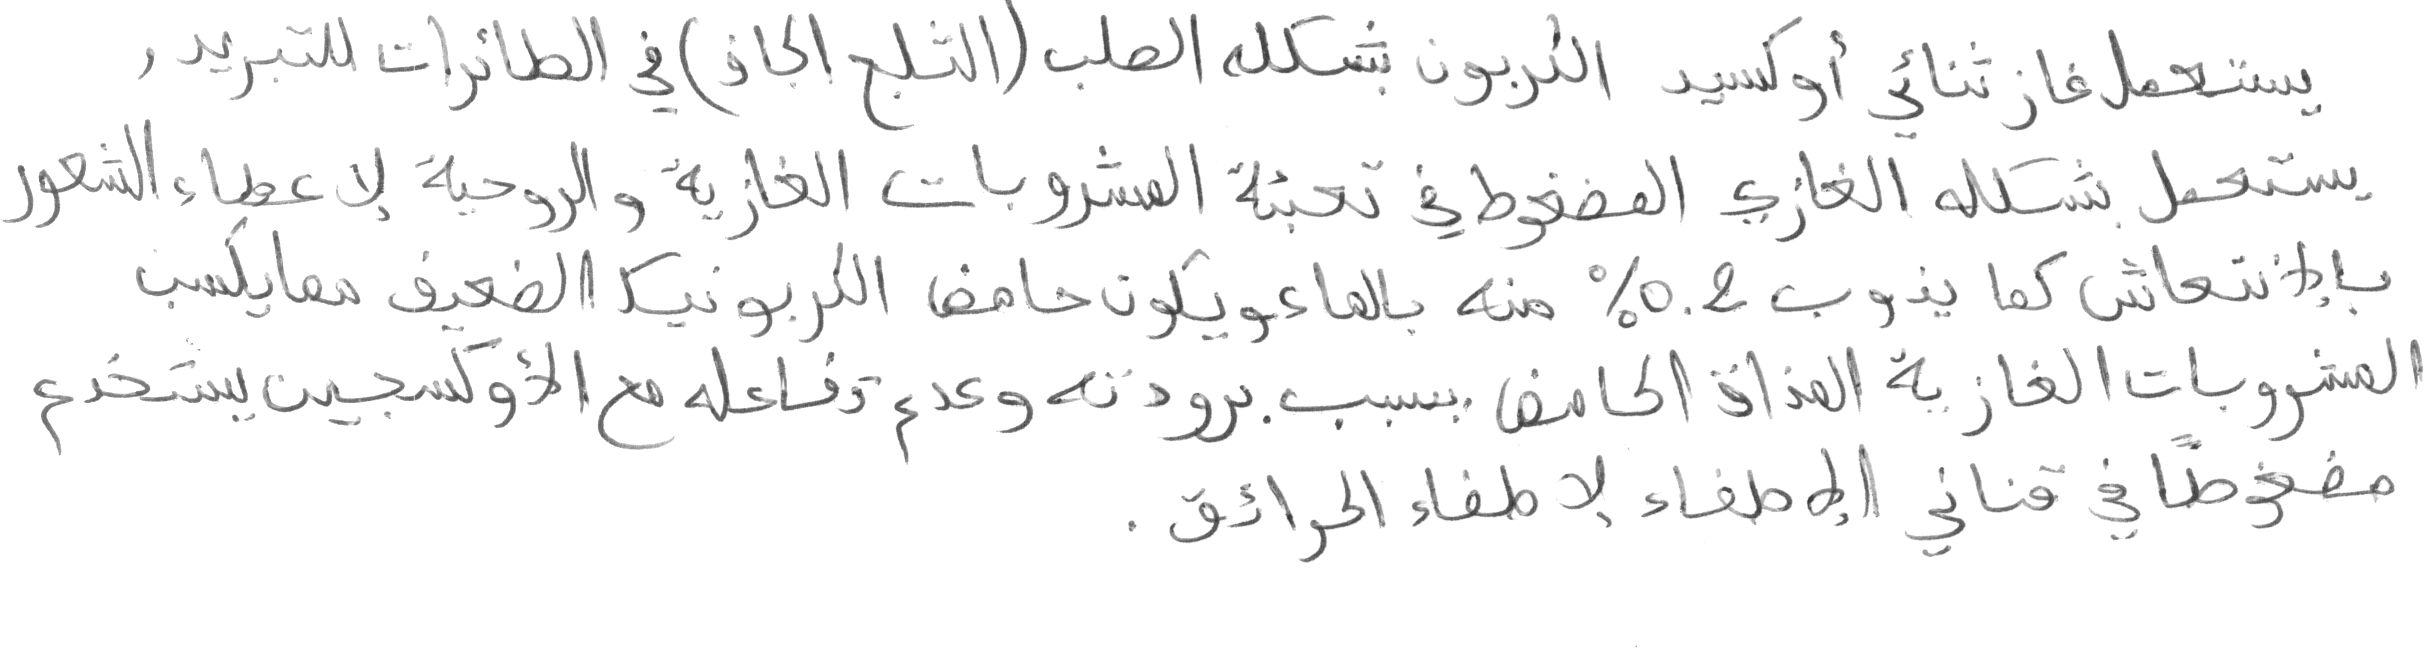 يستعمل غاز ثنائي أوكسيد الكربون بشكله الصلب (الثلج الجاف) في الطائرات للتبريد ,
يستعمل بشكله الغازي المضغوط في تعبئة المشروبات الغازية والروحية لإعطاء الشعور
بالإنتعاش كما يذوب 0.2% منه بالماء ويكون حامض الكربونيك الضعيف مما يكسب
المشروبات الغازية المذاق الحامض, بسبب برودته وعدم تفاعله مع الأوكسجين يستخدم
مضغوطًا في قناني الإطفاء لإطفاء الحرائق .